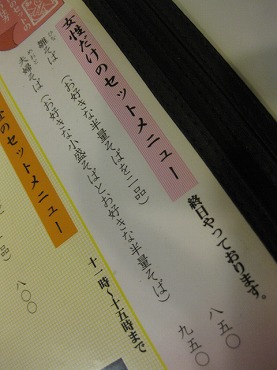 女性だけのセットメニュー
終日やっております。
雛そば(お好きな半量そばを二品)
ひな
八五〇
夫婦そば(お好きな小盛そばと、お好きな半量そば)
めおと
九五〇
十一時～十五時まで
のセットメニュー
八〇〇